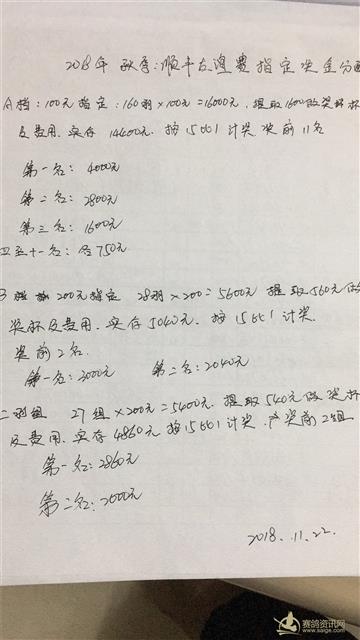 2018年 秋季:顺丰左 费指定奖金分配
A档:100元指定:160羽×100元=16000元,提取1600做奖杯
及费用.实存 14400元.按15661计奖 奖前11名
第一名:4000元
第二名:2800元
第三名:1600元
四至十一名:各750元
B 200元指定 28羽×200=5600元 提取560元做
奖杯及费用.实存5040元.按15661计奖.
奖前2名.
第一名:3000元 第二名:2040元
二羽组 27组×200元=5400元.提取540元做奖杯
及费用.实存4860元 按15661计奖.产奖前2组
第一名:2860元
第二名:2000元
2018.11.22.
赛鸽资讯网
www.saige.com